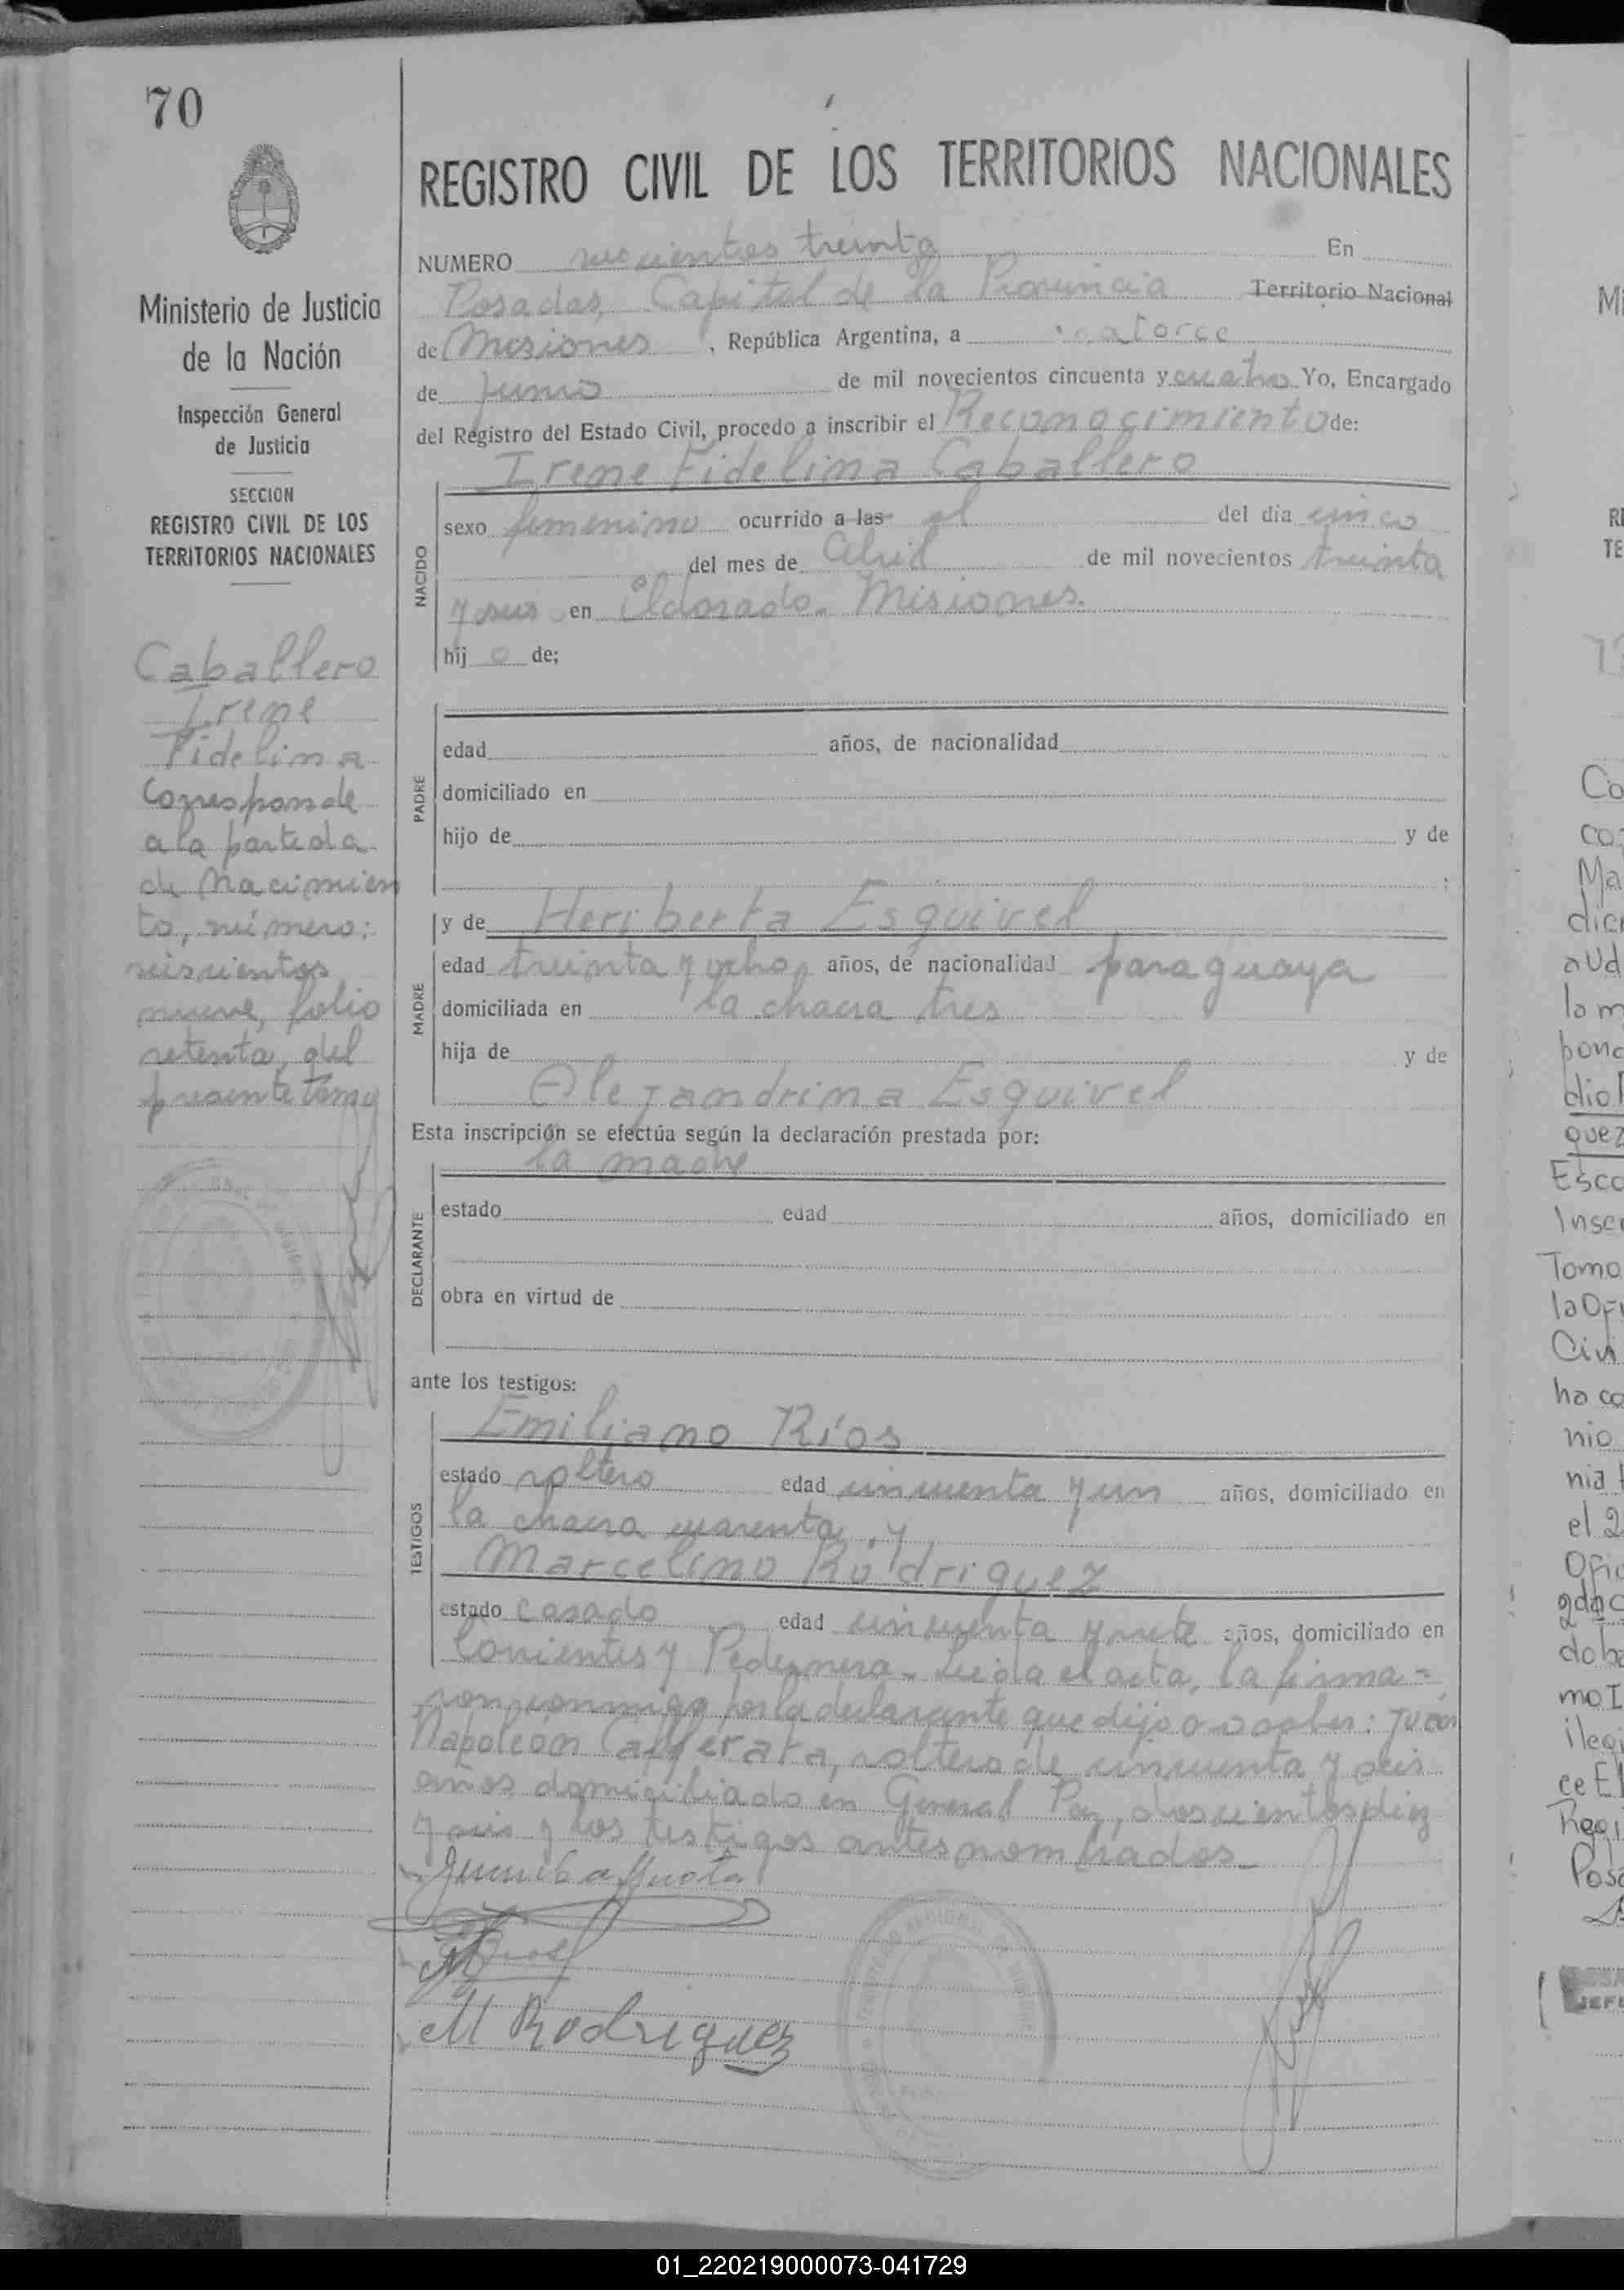 70
REGISTRO CIVIL DE LOS TERRITORIOS NACIONALES
Ministerio de Justicia
de la Nación
Inspección General
de Justicia
SECCION
REGISTRO CIVIL DE LOS
TERRITORIOS NACIONALES
Caballero
Irene
Fidelina
Corresponde
a la partida
de Nacimien
to, número:
seiscientos
nueve, folio
setenta, del
presente tomo
NUMERO seiscientos treinta En
Posadas, Capital de la Provincia Territorio Nacional
de Misiones, República Argentina, a catorce
de Junio de mil novecientos cincuenta y cuatro Yo, Encargado
del Registro del Estado Civil, procedo a inscribir el Reconocimiento de:
Irene Fidelina Caballero
NACIDO
sexo femenino ocurrido a las el del día cinco
del mes de Abril de mil novecientos treinta
y seis en Eldorado. Misiones.
hij o de;
PADRE
edad años, de nacionalidad
domiciliado en
hijo de y de
;
MADRE
y de Heriberta Esquivel
edad treinta y ocho años, de nacionalidad paraguaya
domiciliada en la chacra tres
hija de y de
Alejandrina Esquivel
Esta inscripción se efectúa según la declaración prestada por:
la madre
DECLARANTE
estado edad años, domiciliado en
obra en virtud de
ante los testigos:
TESTIGOS
Emiliano Ríos
estado soltero edad cincuenta y un años, domiciliado en
la chacra cuarenta, y
Marcelino Rodriguez
estado casado edad cincuenta y siete años, domiciliado en
Corrientes y Pedernera. Leida el acta, la firma=
ron conmigo por la declarante que dijo no saber: Juan
Napoleón Cafferata, soltero de cincuenta y seis
años domiciliado en General Paz, doscientos diez
y seis y los testigos antes nombrados.
M Rodriguez
01_220219000073-041729